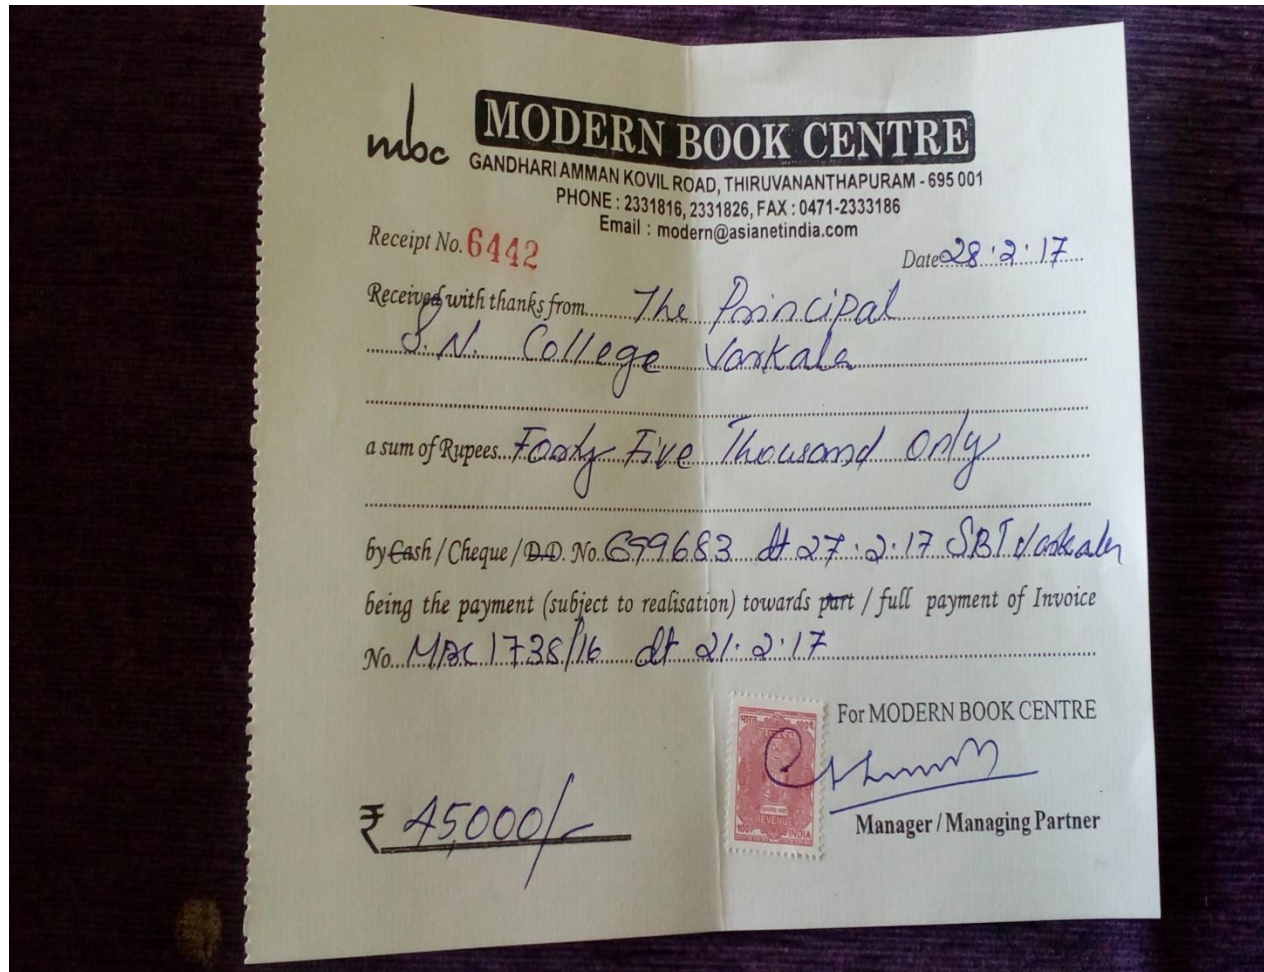 mbc
MODERN BOOK CENTRE
GANDHARI AMMAN KOVIL ROAD, THIRUVANANTHAPURAM - 695 001
PHONE : 2331816, 2331826, FAX : 0471-2333186
Email : modern@asianetindia.com
Receipt No. 6442 Date 28.2.17
Received with thanks from The Principal
S.N. College Varkala
a sum of Rupees Forty Five Thousand Only
by Cash / Cheque / D.D. No. 699683 dt 27.2.17 SBT Varkala
being the payment (subject to realisation) towards part / full payment of Invoice
No. MBC 1738/16 dt 21.2.17
For MODERN BOOK CENTRE
भारत
REVENUE
INDIA
₹ 45,000/-
Manager / Managing Partner